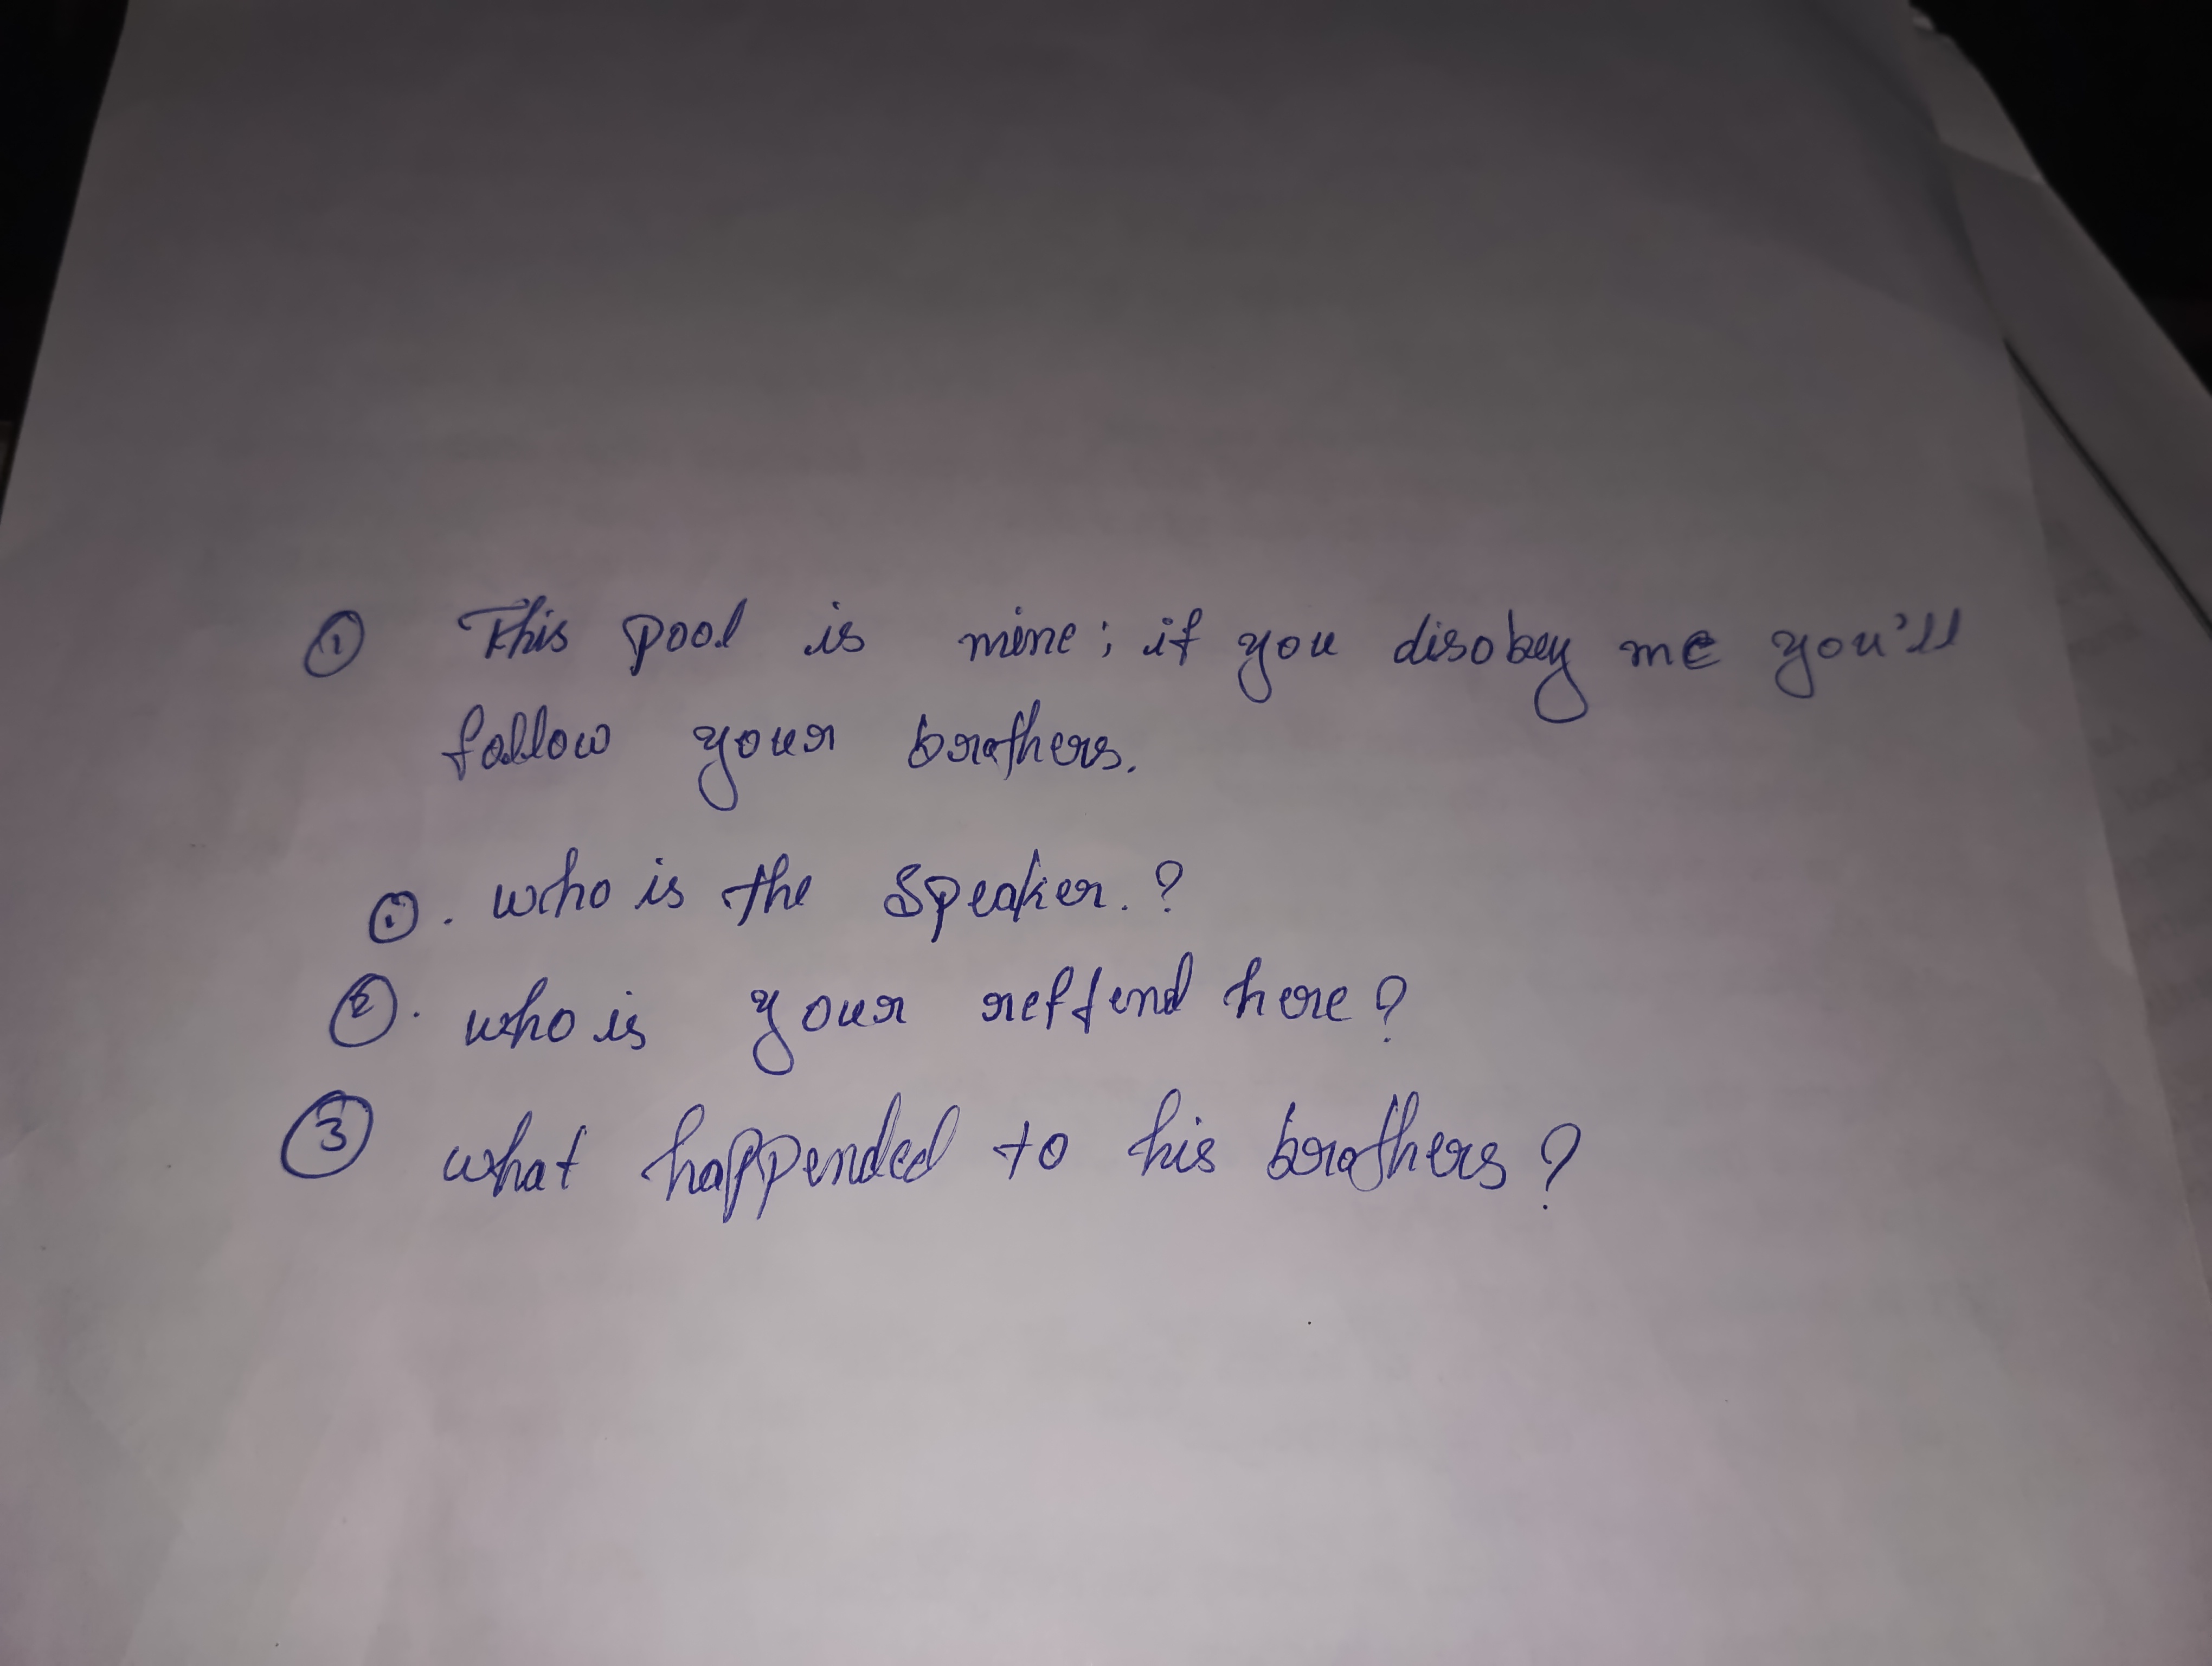 ① This pool is mine; if you disobey me you'll
follow your brothers.
①. who is the speaker.?
②. who is your reffend here?
③ what happended to his brothers?